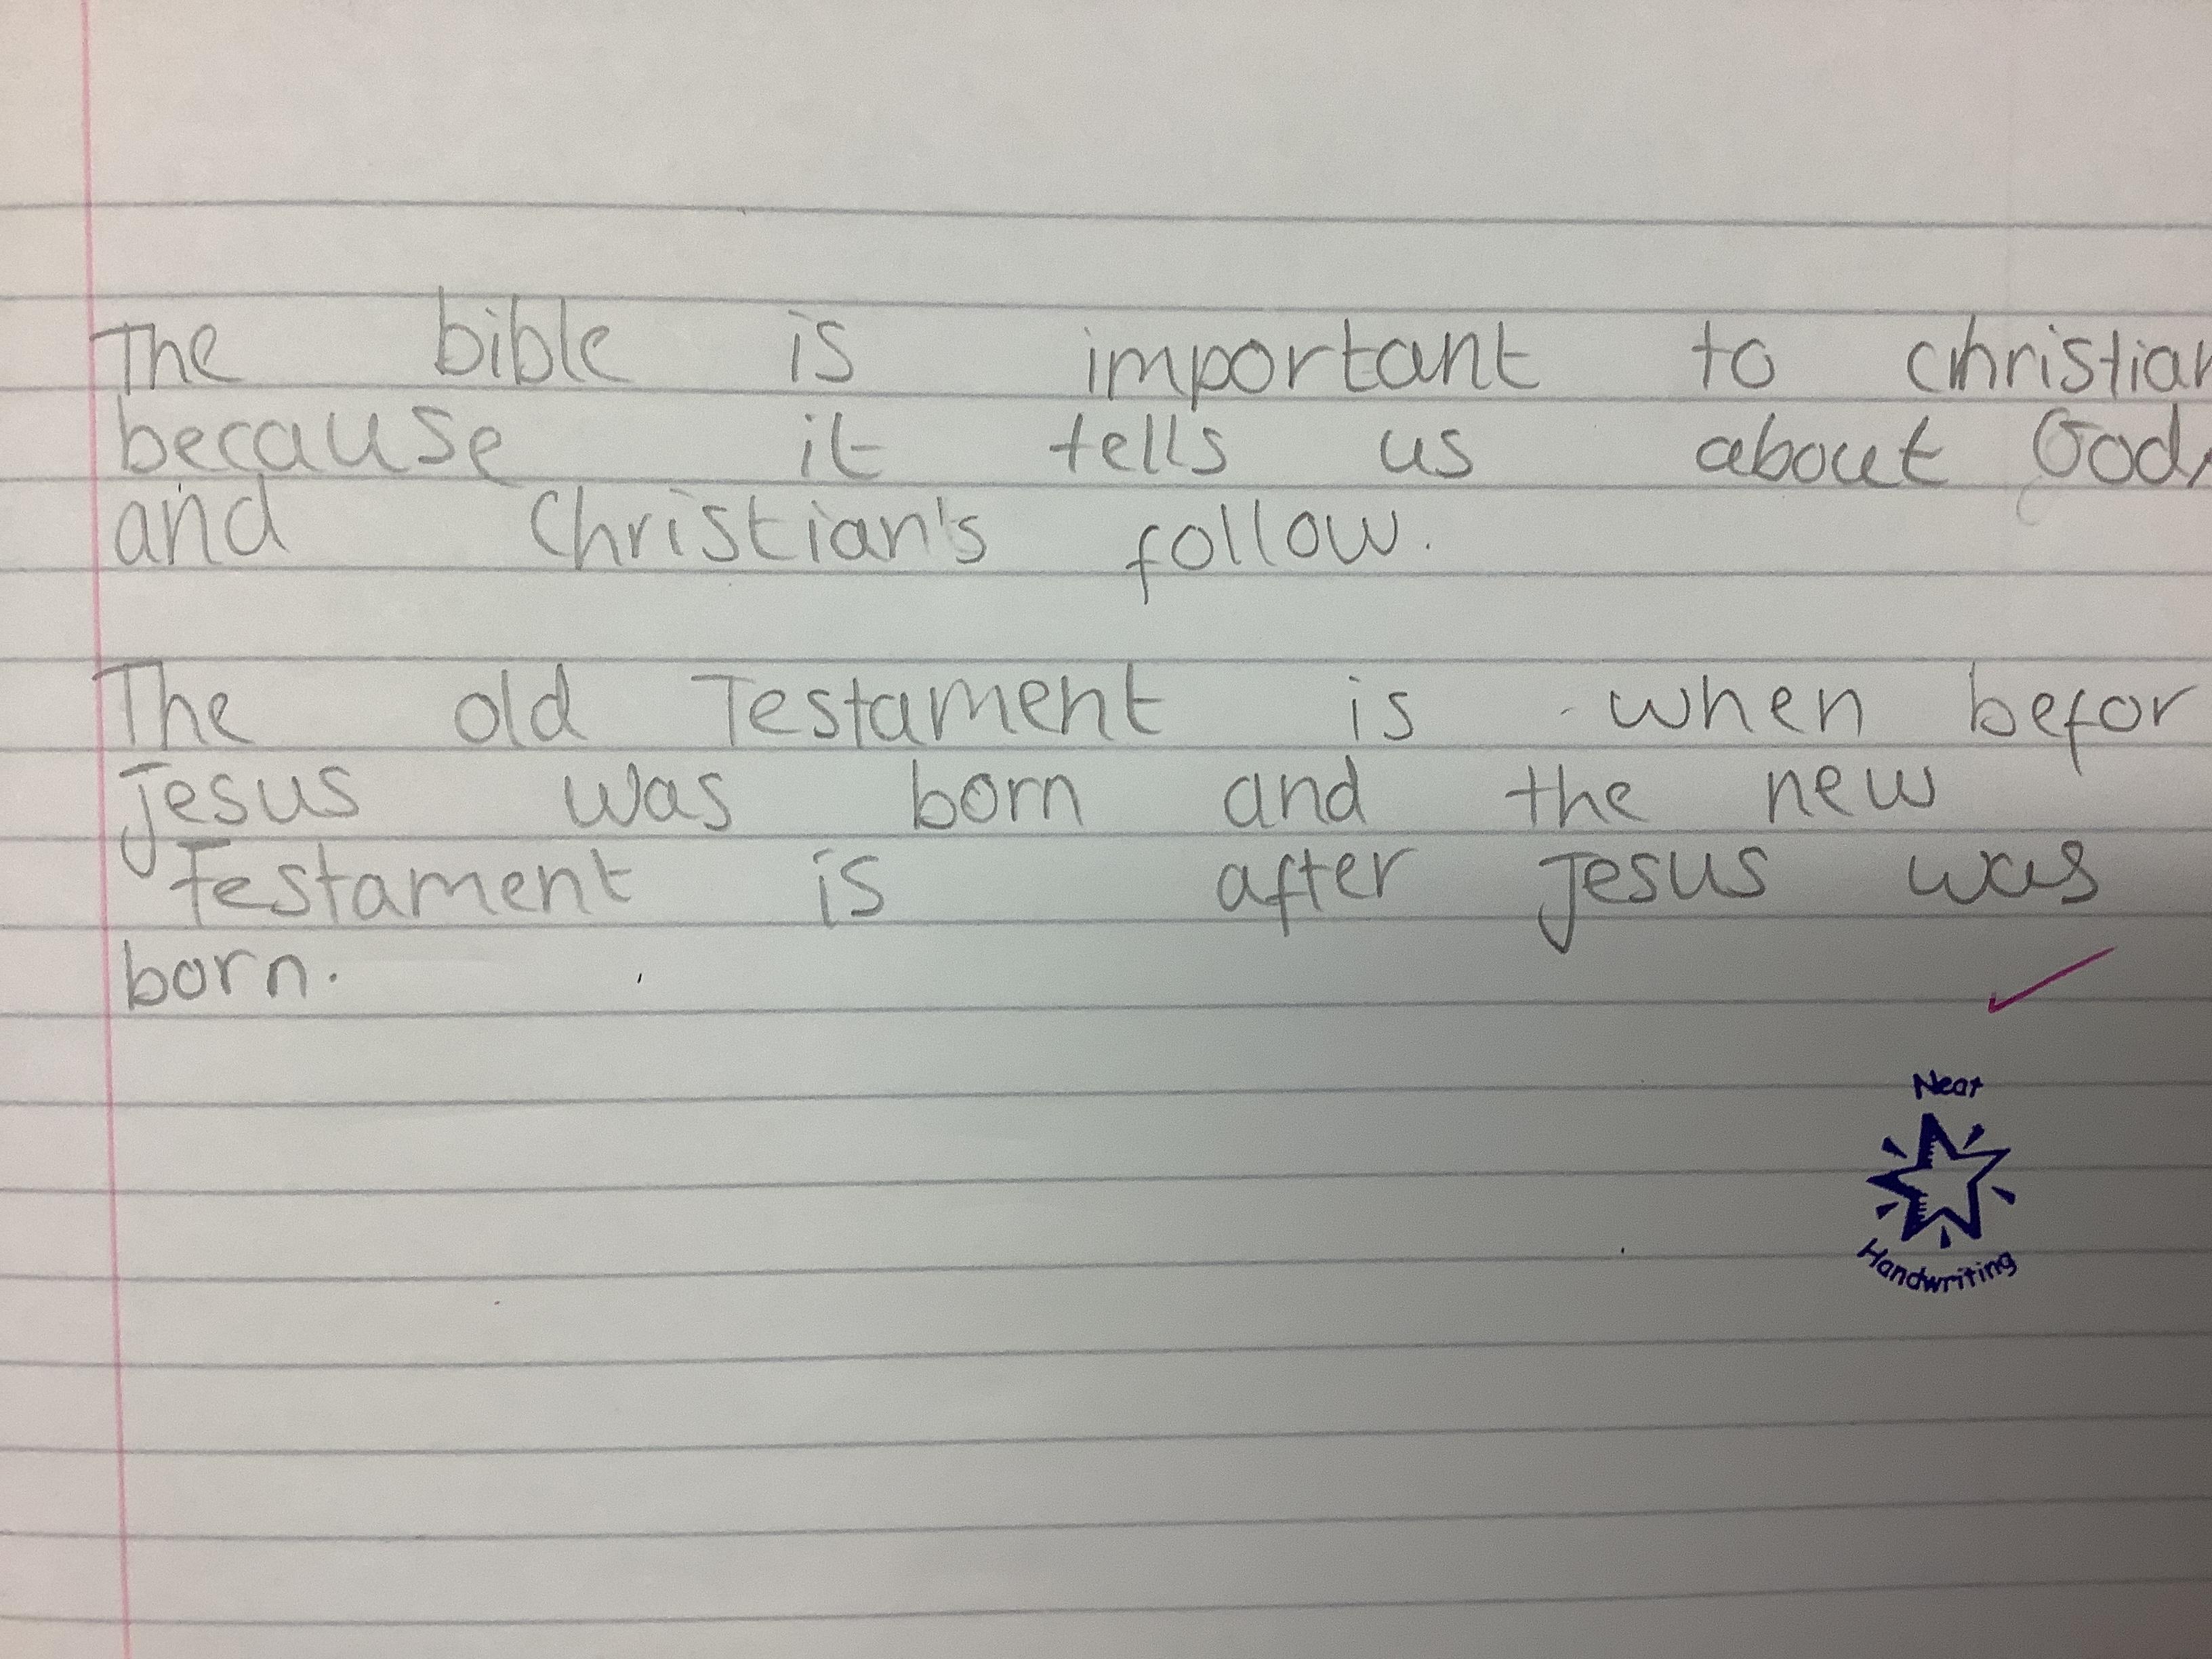 The bible is important to christian
because it tells us about God,
and Christian's follow.
The old Testament is when befor
Jesus was born and the new
Testament is after Jesus was
born.
Neat
Handwriting